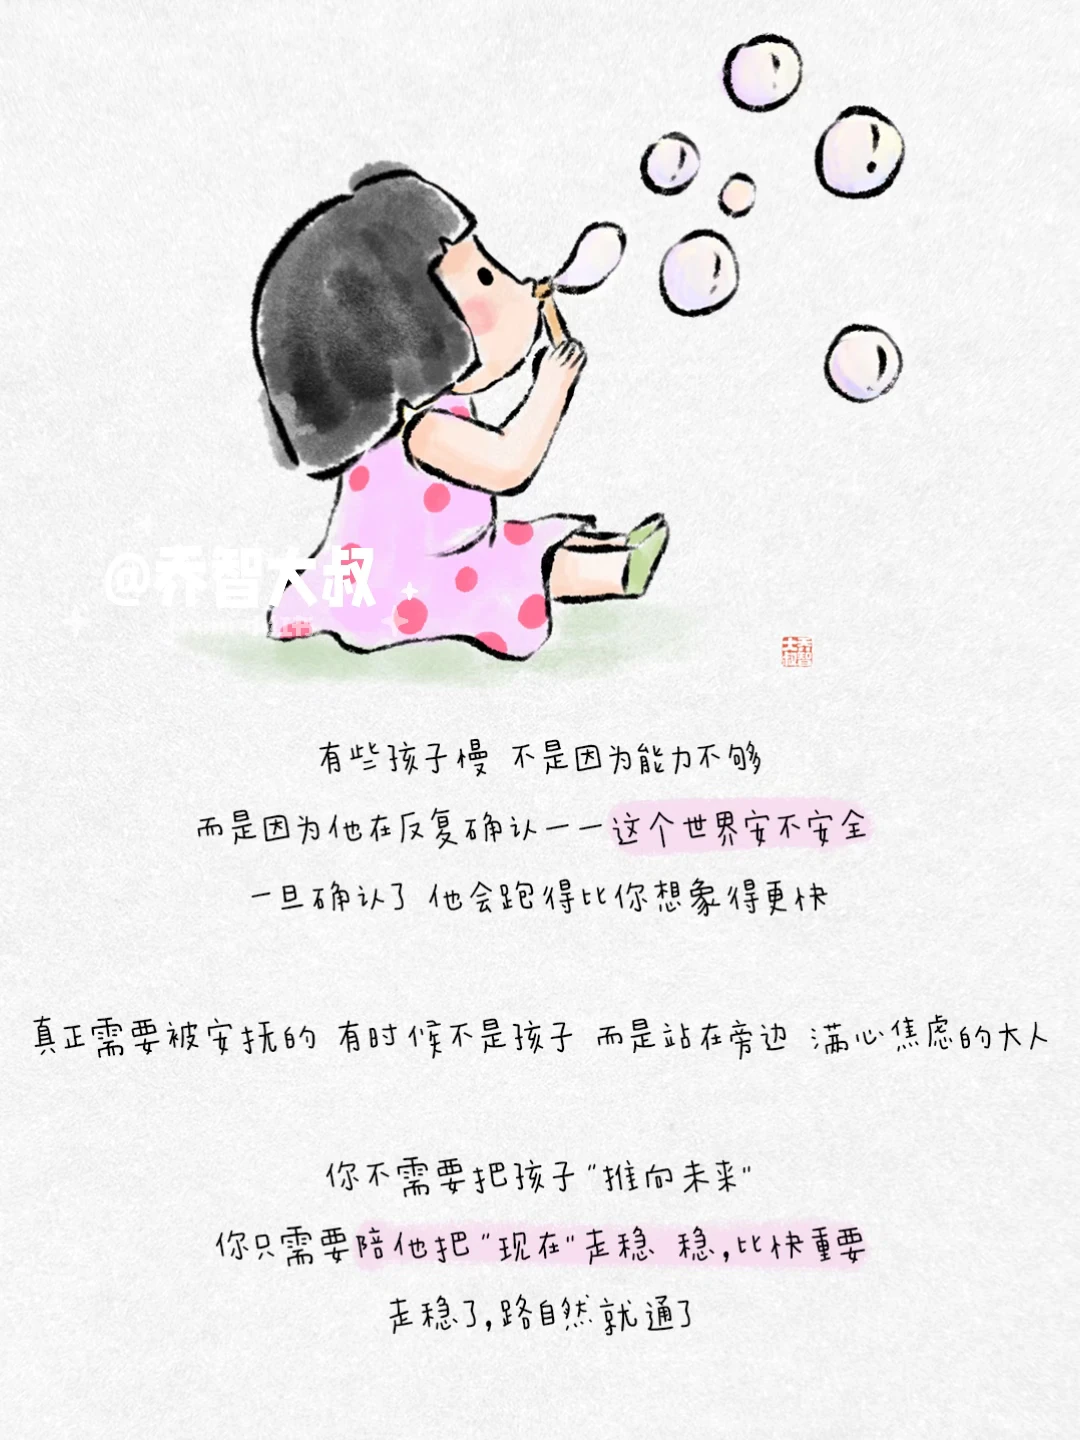 @乔智大叔
乔智大叔
有些孩子慢 不是因为能力不够
而是因为他在反复确认——这个世界安不安全
一旦确认了 他会跑得比你想象得更快
真正需要被安抚的 有时候不是孩子 而是站在旁边 满心焦虑的大人
你不需要把孩子"推向未来"
你只需要陪他把"现在"走稳 稳,比快重要
走稳了,路自然就通了